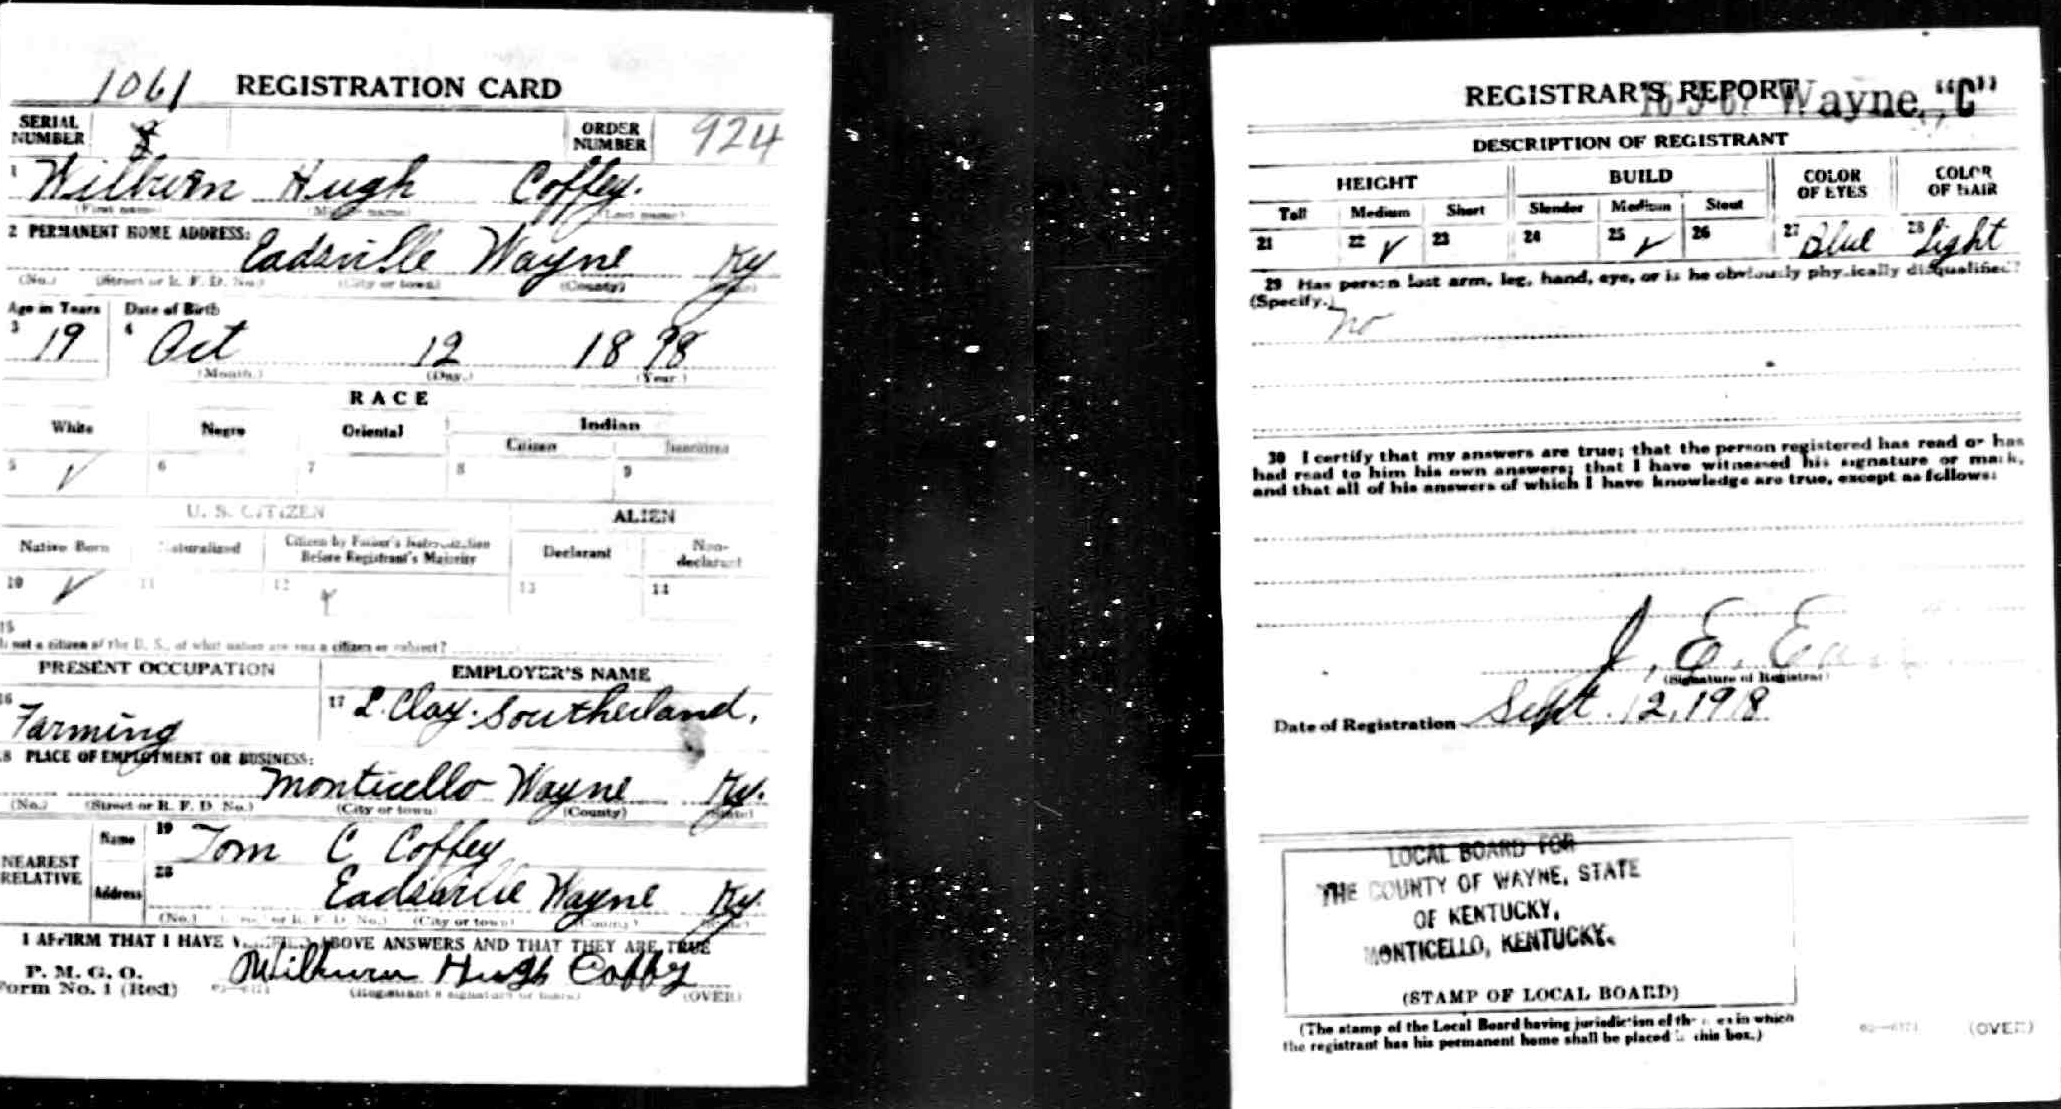 1061 REGISTRATION CARD
SERIAL NUMBER
ORDER NUMBER 924
1 Wilburn Hugh Coffey.
(First name) (Middle name) (Last name)
2 PERMANENT HOME ADDRESS: Eadsville Wayne Ky
(No.) (Street or R. F. D. No.) (City or town) (County) (State)
Age in Years Date of Birth
3 19 4 Oct 12 1898
(Month.) (Day.) (Year.)
RACE
White Negro Oriental Indian
Citizen
5 ✓ 6 7 8 9
U. S. CITIZEN ALIEN
Native Born Naturalized Citizen by Father's Naturalization Before Registrant's Majority Declarant Non-declarant
10 ✓ 11 12 13 14
15
If not a citizen of the U. S., of what nation are you a citizen or subject?
PRESENT OCCUPATION EMPLOYER'S NAME
16 Farming 17 L. Clay Southerland.
18 PLACE OF EMPLOYMENT OR BUSINESS:
Monticello Wayne Ky.
(No.) (Street or R. F. D. No.) (City or town) (County) (State)
NEAREST RELATIVE
Name 19 Tom C Coffey
Address 20 Eadsville Wayne Ky.
(No.) (City or town) (County) (State)
I AFFIRM THAT I HAVE VERIFIED ABOVE ANSWERS AND THAT THEY ARE TRUE
P. M. G. O.
Form No. 1 (Red) Wilburn Hugh Coffey
(Registrant's signature or mark) (OVER)
REGISTRAR'S REPORT Wayne, "C"
DESCRIPTION OF REGISTRANT
HEIGHT BUILD COLOR OF EYES COLOR OF HAIR
Tall Medium Short Slender Medium Stout
21 22 ✓ 23 24 25 ✓ 26 27 Blue 28 Light
29 Has person lost arm, leg, hand, eye, or is he obviously physically disqualified?
(Specify.) no
30 I certify that my answers are true; that the person registered has read or has
had read to him his own answers; that I have witnessed his signature or mark,
and that all of his answers of which I have knowledge are true, except as follows:
J. E.
(Signature of Registrar)
Date of Registration Sept. 12, 1918
LOCAL BOARD FOR
THE COUNTY OF WAYNE, STATE
OF KENTUCKY,
MONTICELLO, KENTUCKY.
(STAMP OF LOCAL BOARD)
(The stamp of the Local Board having jurisdiction of the area in which
the registrant has his permanent home shall be placed in this box.)
(OVER)